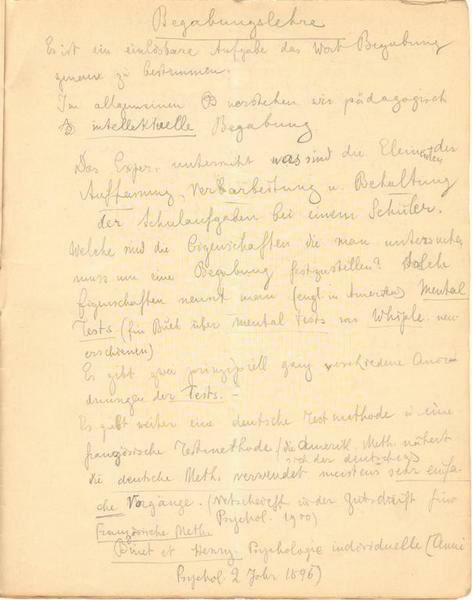 Begabungslehre
Es ist ein einlösbare Aufgabe das Wort Begabung
genau zu bestimmen.
Im allgemeinen verstehen wir pädagogisch
intellektuelle Begabung
Das Exper. untersucht was sind die Elementen der
Auffassung, Verarbeitung u. Behaltung
der Schulaufgaben bei einem Schüler.
Welche sind die Eigenschaften die man untersuchen
muss um eine Begabung festzustellen? Solche
Eigenschaften nennt man (engl. in Amerika) Mental
Tests. (Ein Buch über mental Tests von Whiple neu
erschienen)
Es gibt zwei prinzipiell ganz verschiedene Anor-
dnungen der Tests. -
Es gibt weiter eine deutsche Testmethode u. eine
französische Testmethode (die Amerik. Meth. nähert
sich der deutschen)
die deutsche Meth. verwendet meistens sehr einfa-
che Vorgänge. ( in der Zeitschrift für
Psychol. 1900)
Französische Meth.
Binet et Henry Psychologie individuelle (Anné
Psychol. 2 Jahr 1896)